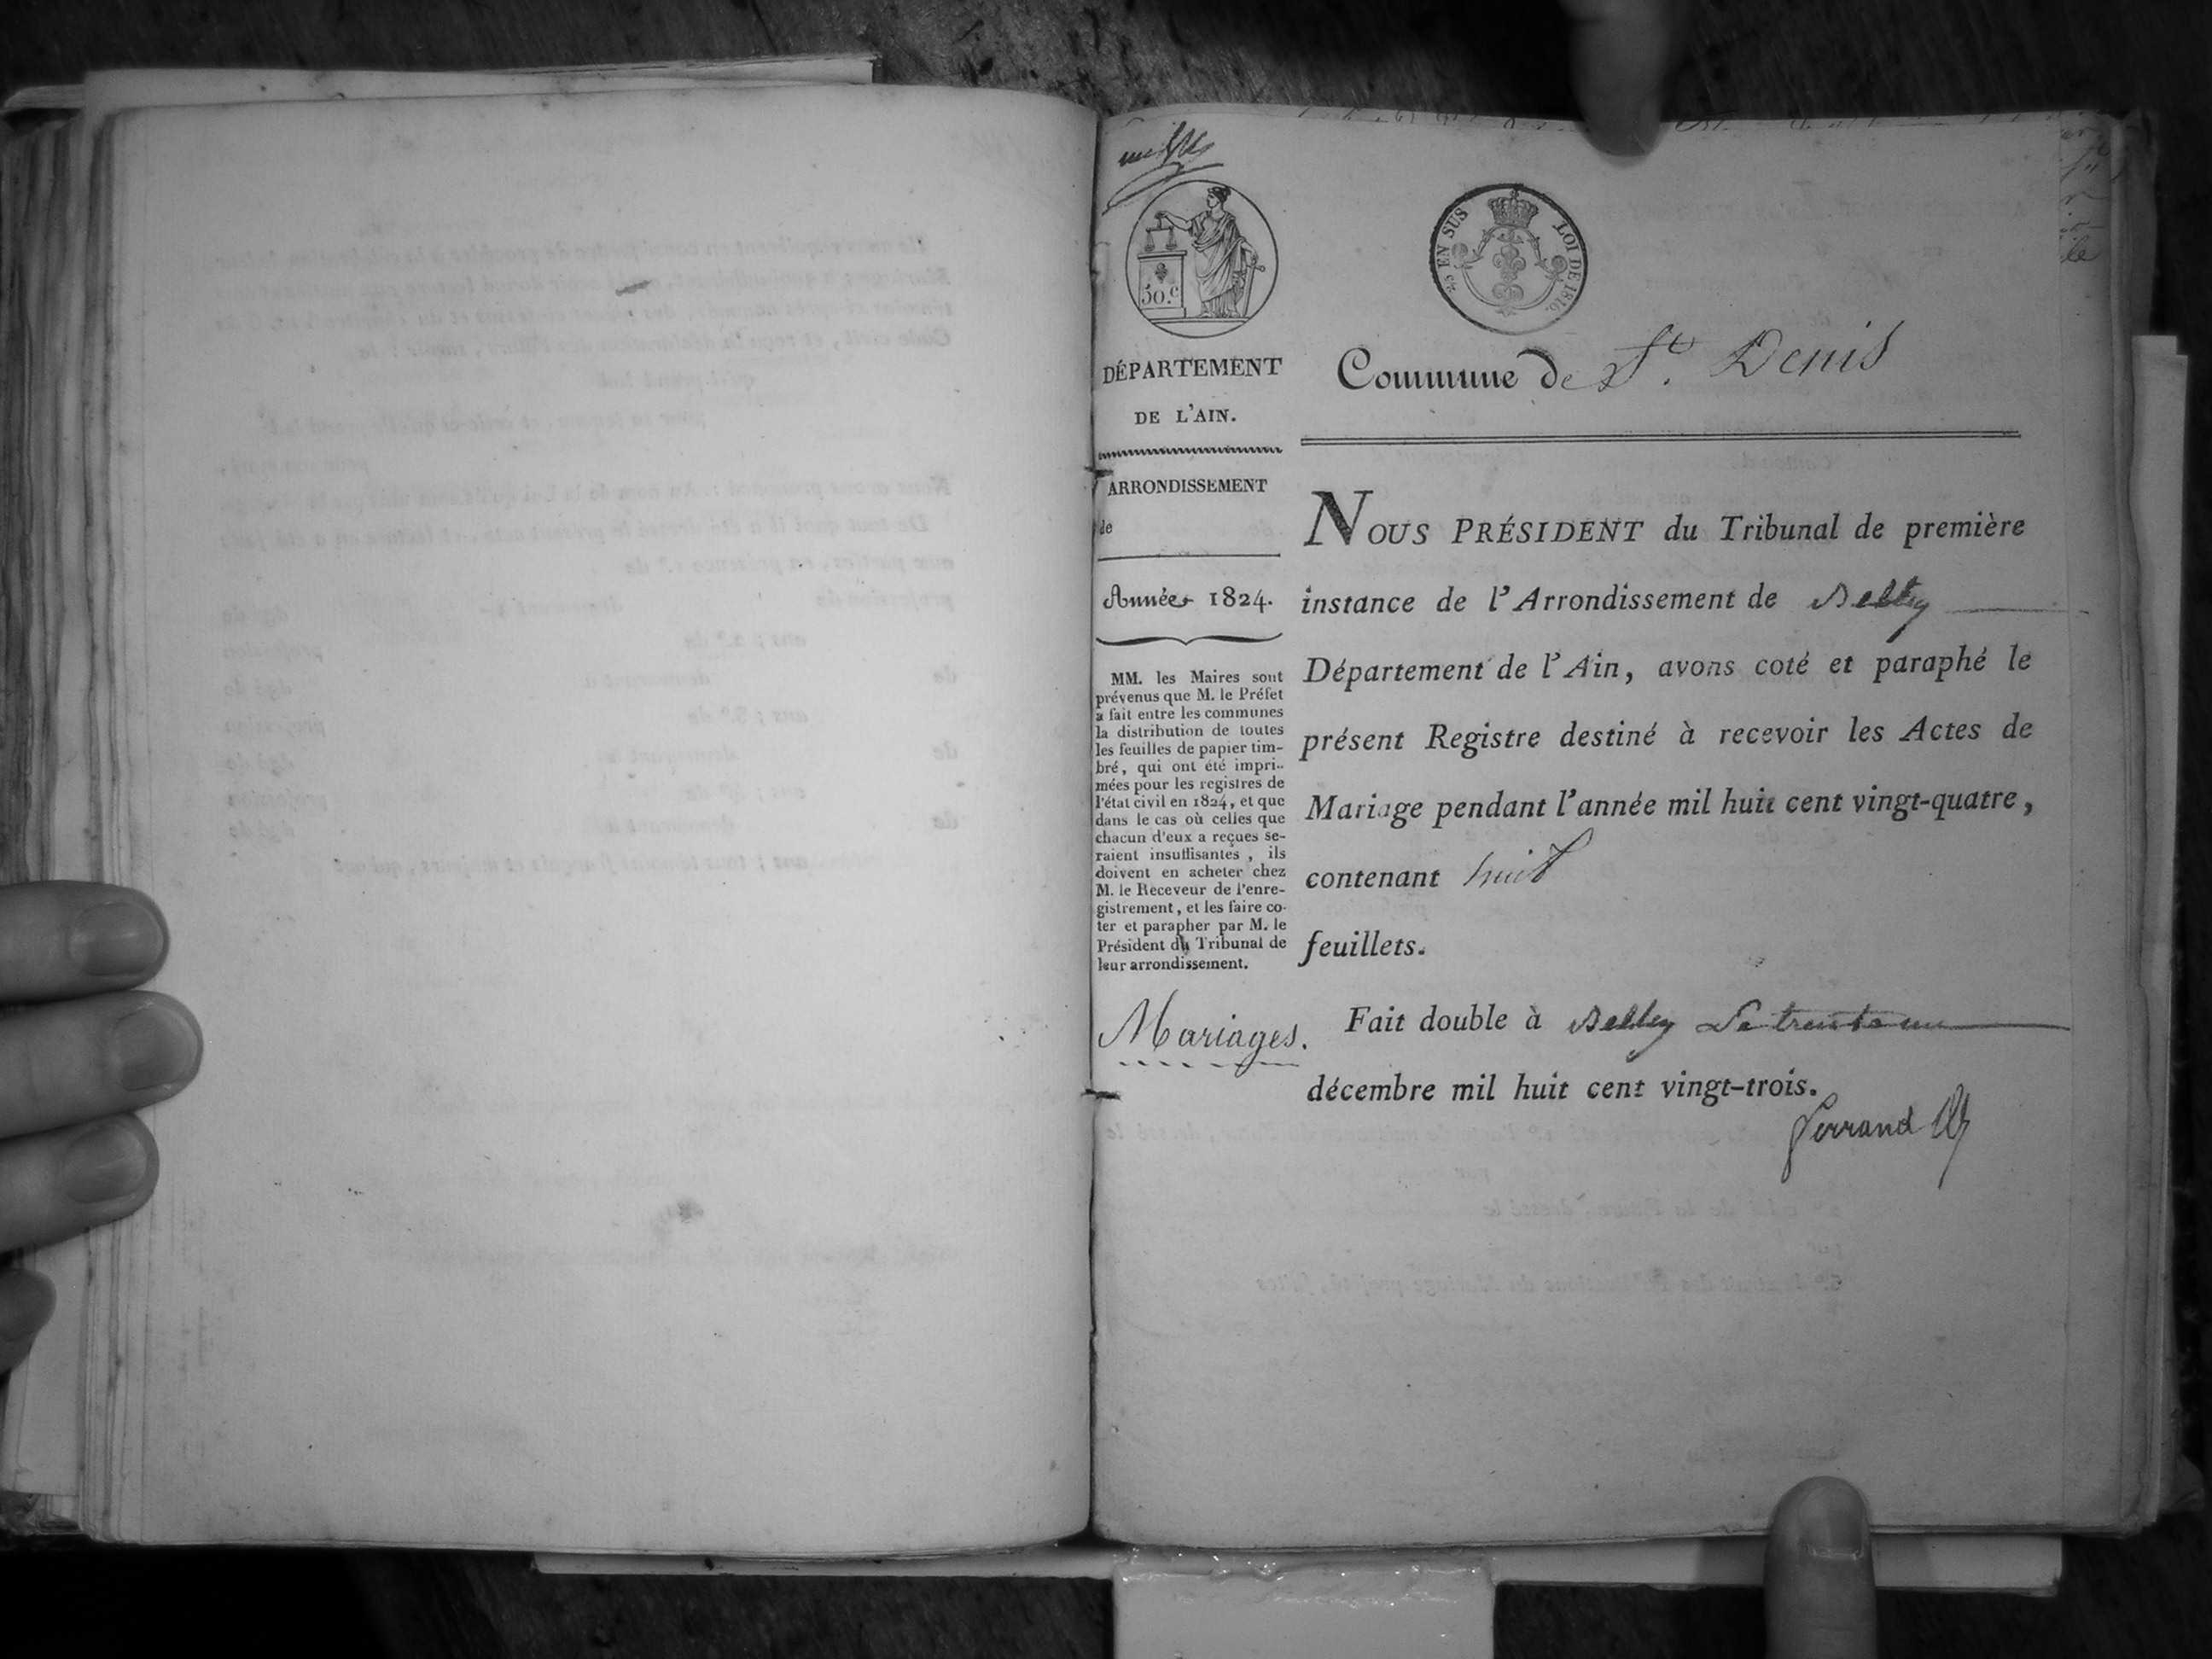 50.c
c. EN SUS
LOI DE 1816.
DÉPARTEMENT
DE L'AIN.
ARRONDISSEMENT
de
Année 1824.
MM. les Maires sont
prévenus que M. le Préfet
a fait entre les communes
la distribution de toutes
les feuilles de papier tim-
bré, qui ont été impri-
mées pour les registres de
l'état civil en 1824, et que
dans le cas où celles que
chacun d'eux a reçues se-
raient insuffisantes, ils
doivent en acheter chez
M. le Receveur de l'enre-
gistrement, et les faire co-
ter et parapher par M. le
Président du Tribunal de
leur arrondissement.
Mariages.
Commune de St. Denis
NOUS PRÉSIDENT du Tribunal de première
instance de l'Arrondissement de Belley
Département de l'Ain, avons coté et paraphé le
présent Registre destiné à recevoir les Actes de
Mariage pendant l'année mil huit cent vingt-quatre,
contenant huit
feuillets.
Fait double à Belley Le trente un
décembre mil huit cent vingt-trois.